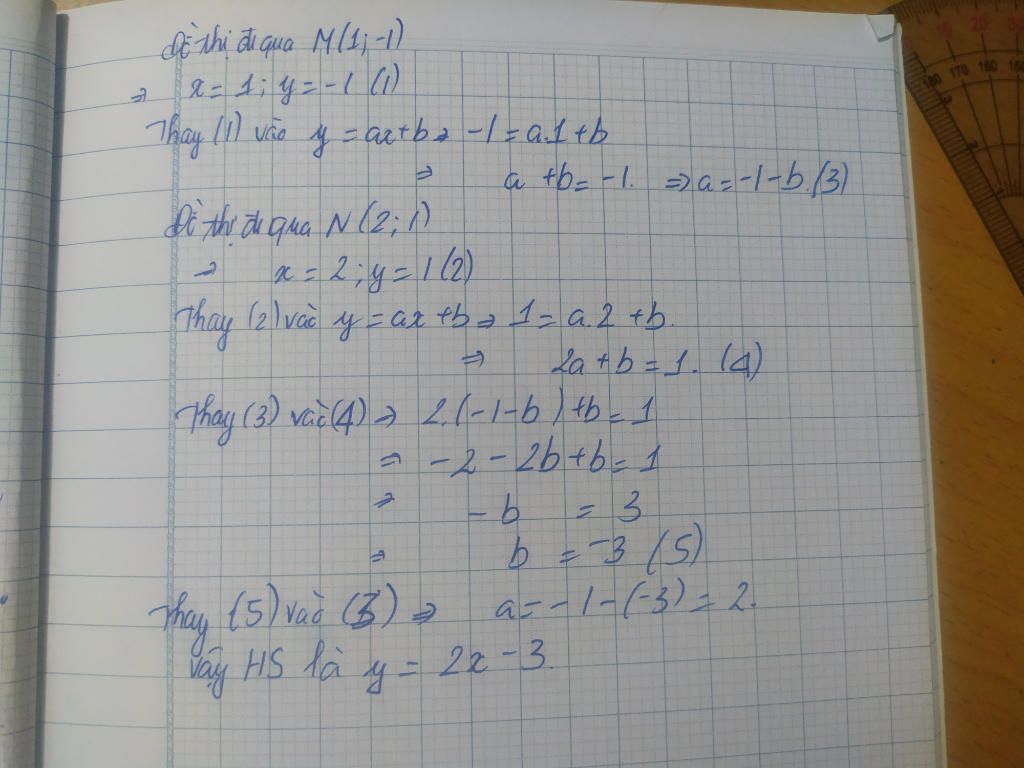 Đồ thị đi qua M(1;-1)
⇒ x = 1; y = -1 (1)
Thay (1) vào y = ax+b ⇒ -1 = a.1+b
⇒ a +b = -1. ⇒ a = -1-b.(3)
Đồ thị đi qua N(2;1)
⇒ x = 2; y = 1 (2)
Thay (2) vào y = ax+b ⇒ 1 = a.2 +b.
⇒ 2a+b = 1. (4)
Thay (3) vào (4) ⇒ 2.(-1-b)+b = 1
⇒ -2 - 2b+b = 1
⇒ -b = 3
⇒ b = -3 (5)
Thay (5) vào (3) ⇒ a = -1-(-3) = 2.
Vậy HS là y = 2x - 3.
10 20 30
180 170 160 150